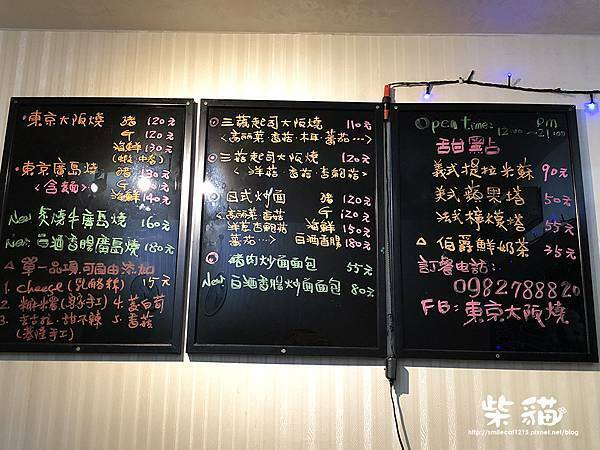 東京大阪燒 豬 120元
牛 120元
海鮮 130元
東京廣島燒 豬 130元
<含麵> 牛
海鮮 140元
New 炙燒牛廣島燒 160元
New 白酒香腸廣島燒 180元
△ 單一品項,可自由添加
1. cheese(乳酪絲) 15元
三菇起司大阪燒 110元
<高麗菜·香菇·木耳·蕃茄…>
三菇起司大阪燒 120元
<洋菇·香菇·杏鮑菇>
日式炒麵 豬 120元
<高麗菜·香菇 牛 120元
洋菇杏鮑菇 海鮮 150元
蕃茄…> 白酒香腸 180元
豬肉炒麵麵包 55元
New 白酒香腸炒麵麵包 80元
Open time: pm
12:00~21:00
甜點
義式提拉米蘇 90元
美式蘋果塔 50元
法式檸檬塔 55元
△ 伯爵鮮奶茶 35元
訂餐電話:
0982788820
FB:東京大阪燒
柴貓
http://smilecat1215.pixnet.net/blog